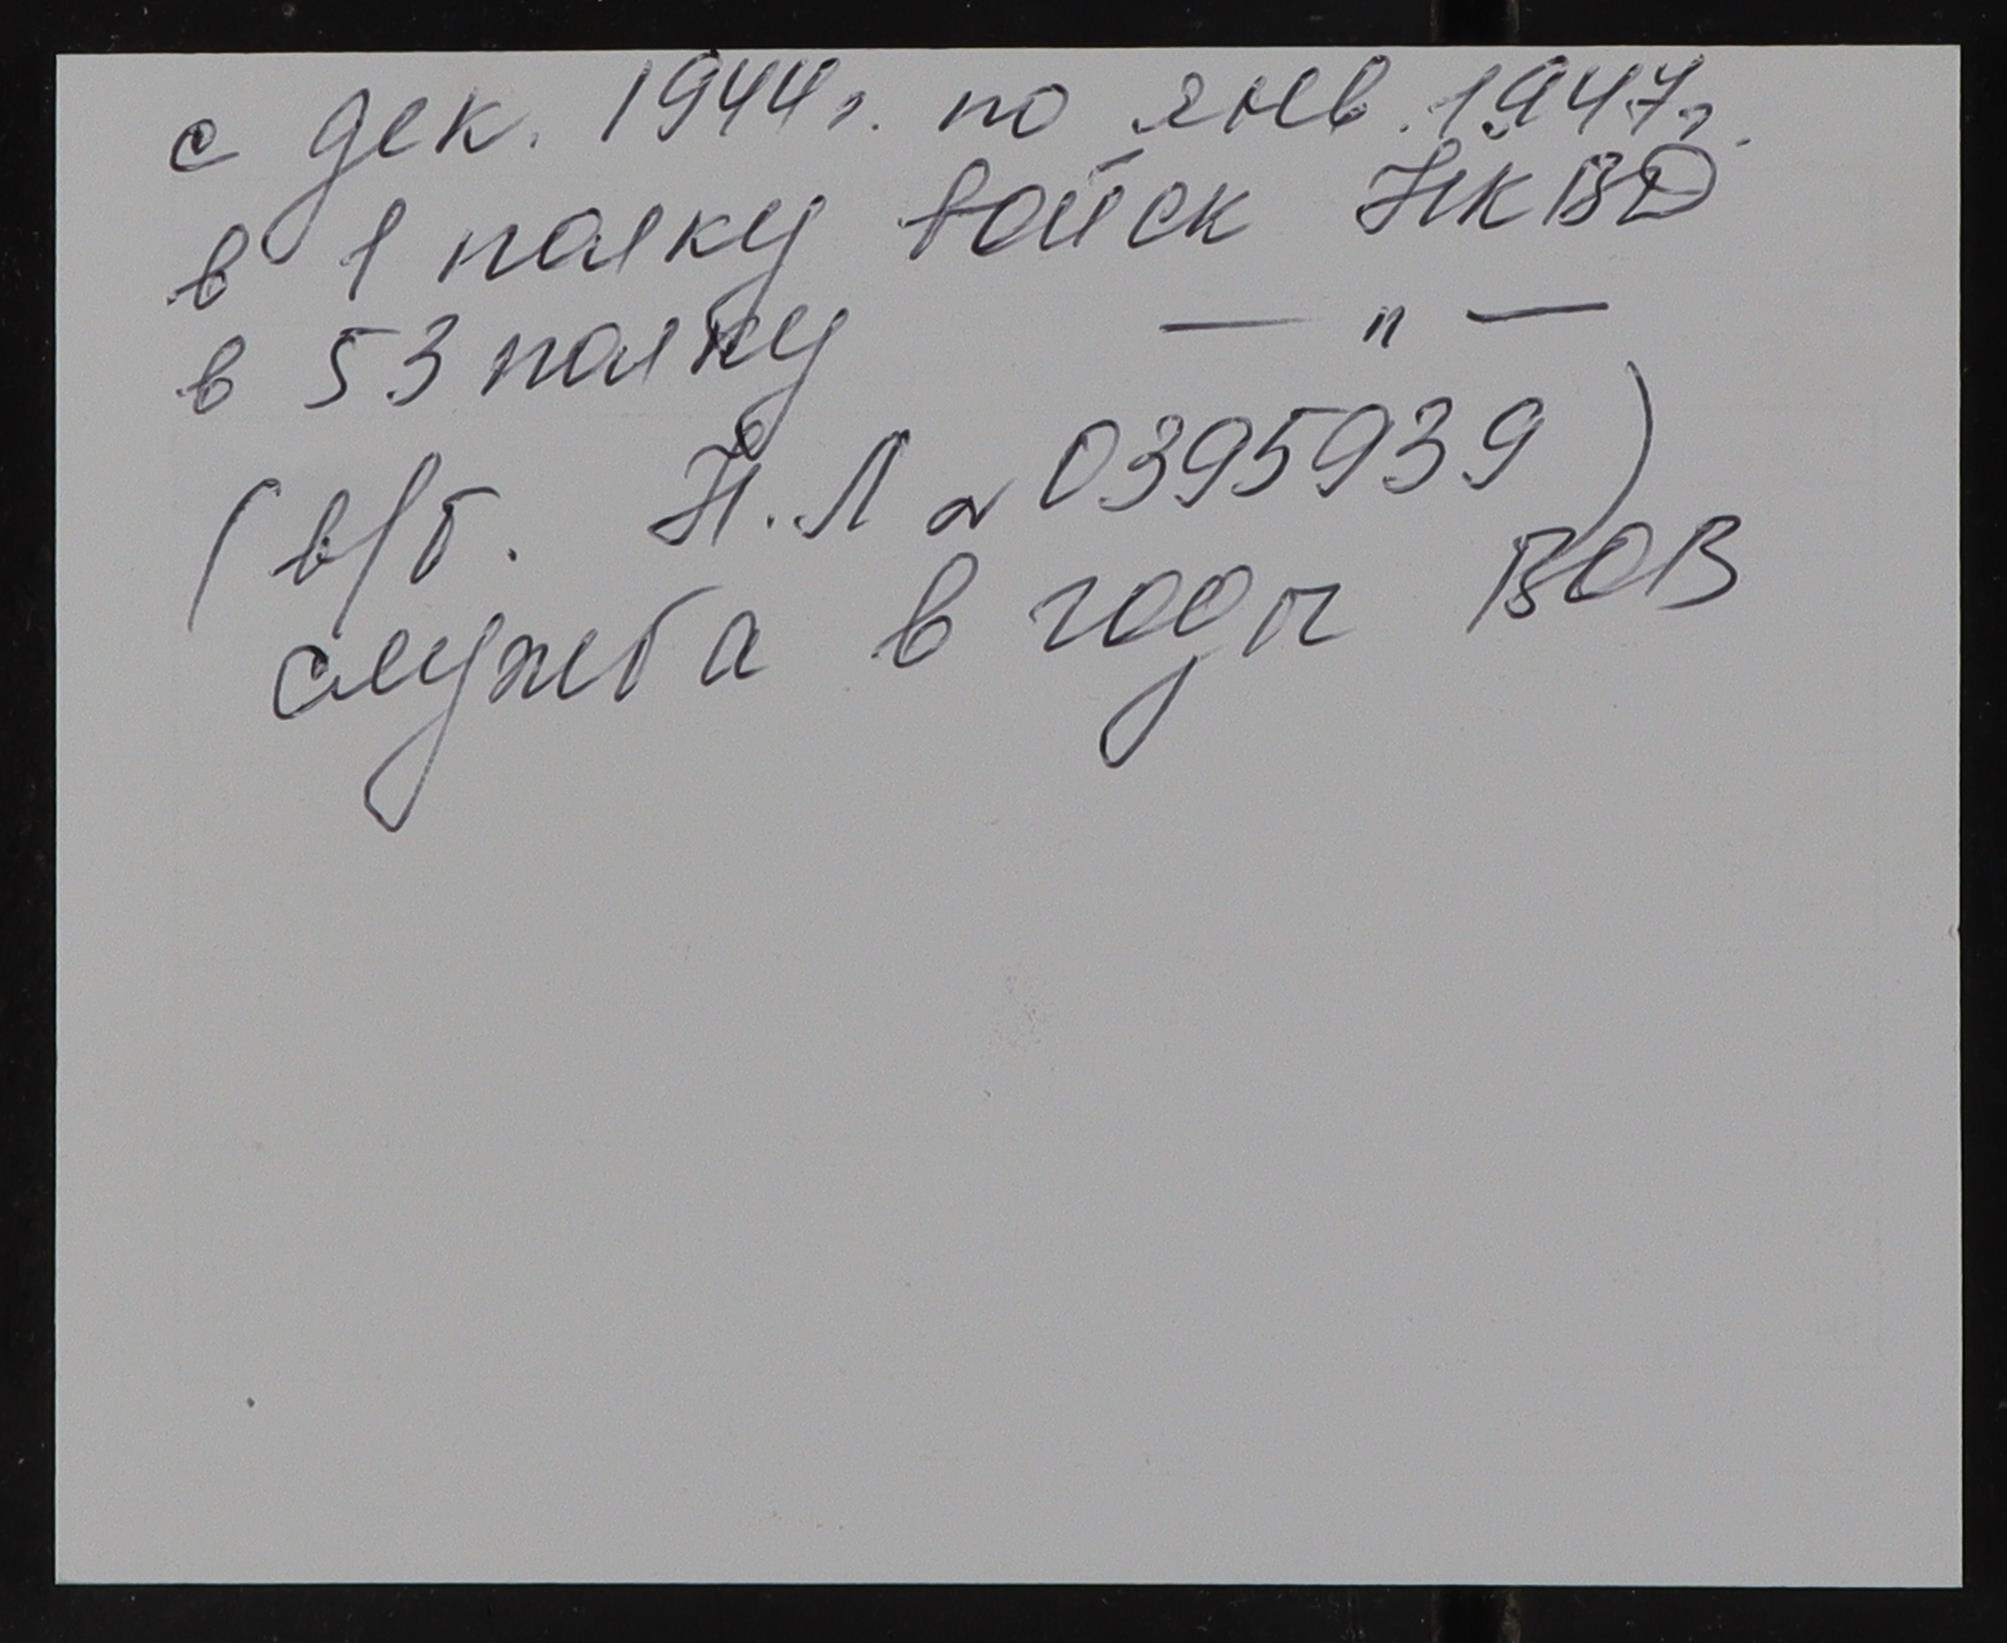 с дек. 1944г. по янв. 1947г.
в 1 полку войск НКВД
в 53 полку — " —
(в/б. НЛ № 0395939)
служба в годы ВОВ